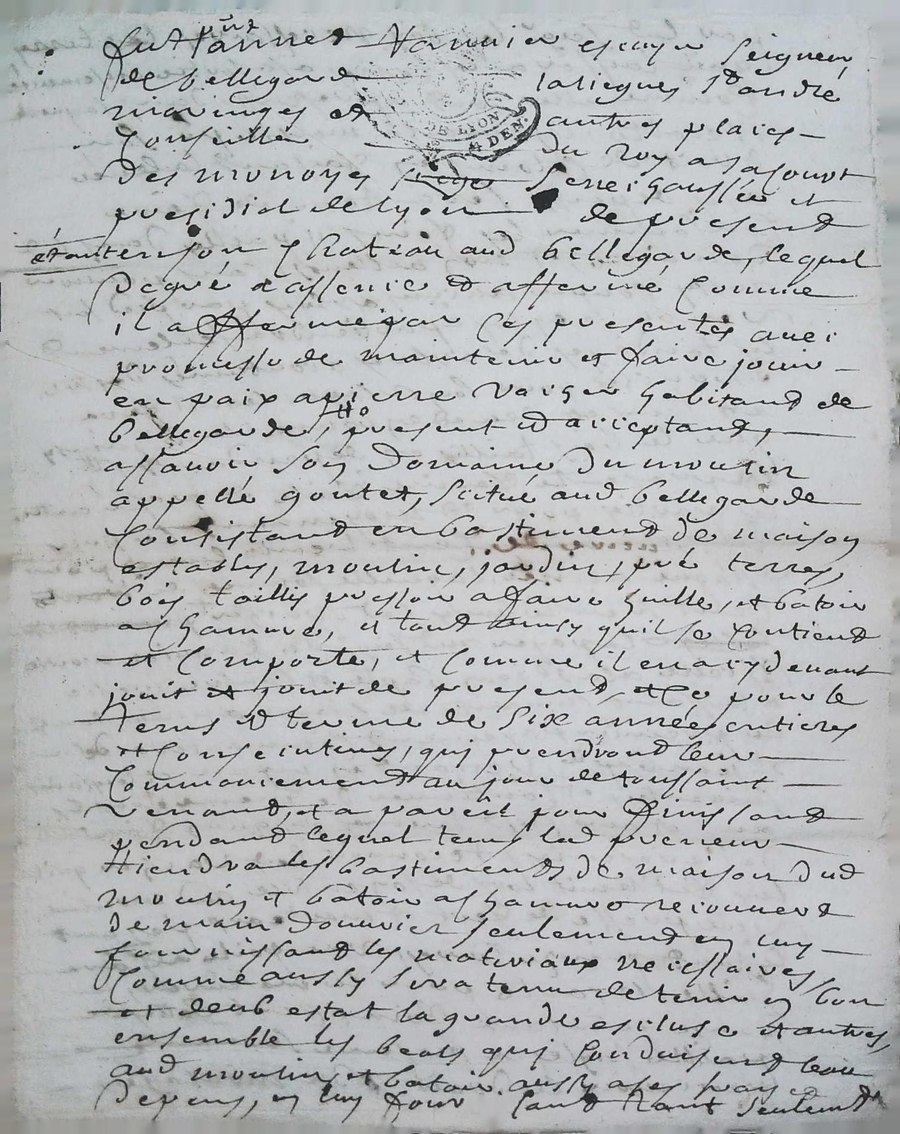 pnt
fut annet Vannier escuyer seigneur
de bellegarde laliegues st andré
maringes et autres places
Conseiller du roy a sa court
des monoyes senechaussée et
presidial de lyon de present
DE LYON
4 DEN.
étant en son chateau aud bellegarde, lequel
de gré a assencé et affermé Comme
il afferme par Ces presentes avec
promesse de maintenir et faire jouir
en paix a pierre habitand de
bellegarde, present et acceptand,
assavoir son domaine du moulin
appellé goutet, scitué aud bellegarde
Consistand en bastiment de maison
establs, moulin, jardin, pré terres,
bois taillis pressoir a faire huille, et batoir
a chanvre, et tout ainsy quil se Contient
et Comporte, et Comme il en a cy devant
jouit et jouit de present, et Ce pour le
tems et terme de six années entieres
et Consecutives, qui prendrond leur
Commancement au jour de toussaint
venand, et a pareil jour finissand
pendand lequel tems led preneur
tiendra les bastiments de maison dud
moulin et batoir a chanvre recouvert
de main douvrier seulement en luy
fournissand les materiaux necessaires
Comme aussy sera tenu de tenir en bon
et deub estat la grande escluse et autres,
ensemble les beals quj Conduisent leau
aud moulin et batoir aussy a ses frais et
depens, en luy seulement